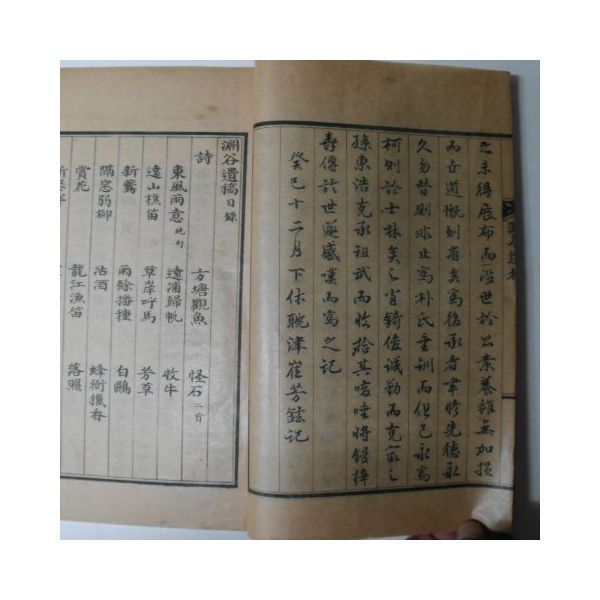 志未得展布而沒世於公素養雖無加損
而世道慨則有矣焉後承者聿修先德永
久勿替則球止焉朴氏垂訓而但已永爲
柯則於士林矣之肖錡俊誠勤而克家之
孫東浩克承祖武而收拾其咳唾將鋟梓
壽傳於世遂感嘆而寫之記
癸巳十二月下休眺津崔芳鉉記
淵谷遺稿目錄
詩
東風雨意 絶句 方塘觀魚 怪石 二首
遠山樵笛 遠浦歸帆 牧牛
新鶯 草岸呼馬 芳草
隔窓弱柳 雨餘播種 白鷗
賞花 沽酒 蜂衙獵香
龍江漁笛 落照